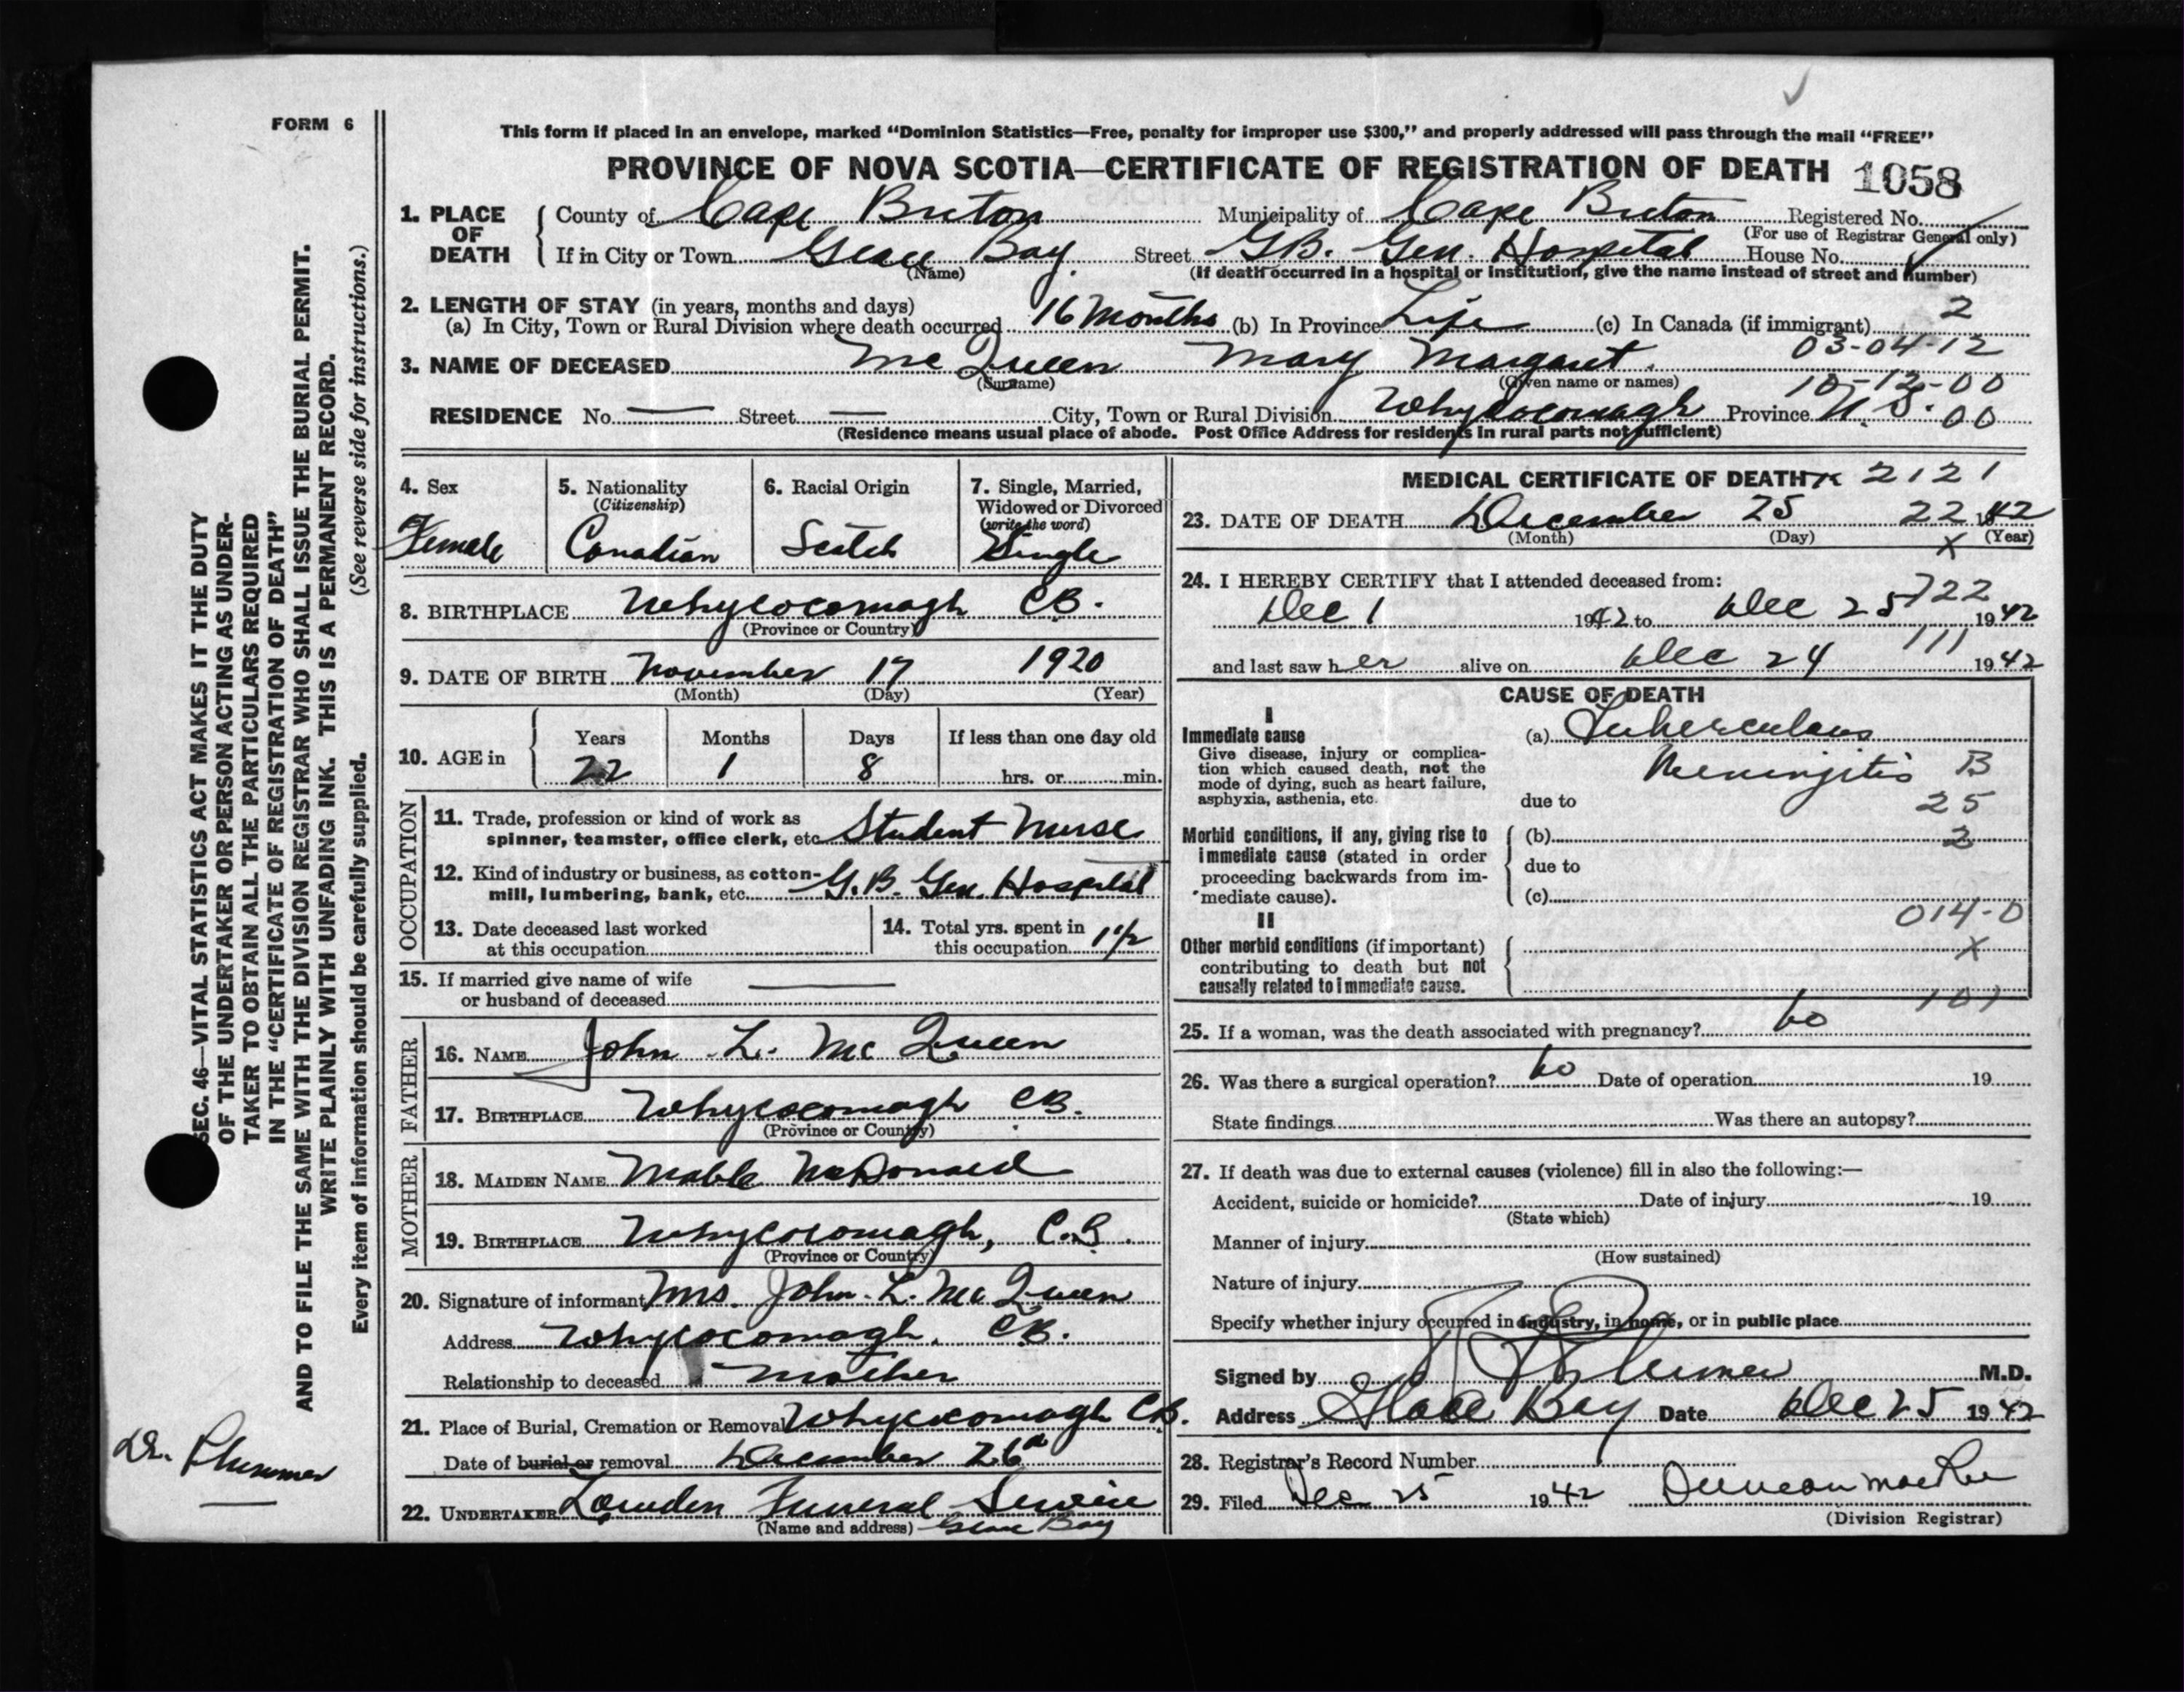 FORM 6
This form if placed in an envelope, marked "Dominion Statistics—Free, penalty for improper use $300," and properly addressed will pass through the mail "FREE"
PROVINCE OF NOVA SCOTIA—CERTIFICATE OF REGISTRATION OF DEATH 1058
1. PLACE OF DEATH
County of Cape Breton Municipality of Cape Breton Registered No.
(For use of Registrar General only)
If in City or Town Glace Bay Street G.B. Gen. Hospital House No.
(Name) (If death occurred in a hospital or institution, give the name instead of street and number)
2. LENGTH OF STAY (in years, months and days)
(a) In City, Town or Rural Division where death occurred 16 Months (b) In Province Life (c) In Canada (if immigrant) 2
03-04-12
3. NAME OF DECEASED Mc Queen Mary Margaret.
(Surname) (Given name or names)
10-12-00
RESIDENCE No. — Street — City, Town or Rural Division Whycocomagh Province N.S. 00
(Residence means usual place of abode. Post Office Address for residents in rural parts not sufficient)
4. Sex
Female
5. Nationality
(Citizenship)
Canadian
6. Racial Origin
Scotch
7. Single, Married,
Widowed or Divorced
(write the word)
Single
8. BIRTHPLACE Whycocomagh C.B.
(Province or Country)
9. DATE OF BIRTH November 17 1920
(Month) (Day) (Year)
10. AGE in
Years Months Days If less than one day old
22 1 8 hrs. or min.
OCCUPATION
11. Trade, profession or kind of work as
spinner, teamster, office clerk, etc. Student Nurse
12. Kind of industry or business, as cotton-
mill, lumbering, bank, etc. G.B. Gen Hospital
13. Date deceased last worked
at this occupation
14. Total yrs. spent in
this occupation 1 1/2
15. If married give name of wife
or husband of deceased —
FATHER
16. NAME John L. Mc Queen
17. BIRTHPLACE Whycocomagh C.B.
(Province or Country)
MOTHER
18. MAIDEN NAME Mable McDonald
19. BIRTHPLACE Whycocomagh, C.B.
(Province or Country)
20. Signature of informant Mrs. John L. Mc Queen
Address Whycocomagh, C.B.
Relationship to deceased Mother
21. Place of Burial, Cremation or Removal Whycocomagh C.B.
Date of burial or removal December 26
22. UNDERTAKER Lowden Funeral Service
(Name and address) Glace Bay
MEDICAL CERTIFICATE OF DEATH 2121
23. DATE OF DEATH December 25 22 1942
(Month) (Day) (Year)
X
24. I HEREBY CERTIFY that I attended deceased from:
722
Dec 1 1942 to Dec 25 1942
111
and last saw her alive on Dec 24 1942
CAUSE OF DEATH
I
Immediate cause
Give disease, injury or complica-
tion which caused death, not the
mode of dying, such as heart failure,
asphyxia, asthenia, etc.
(a) Tuberculous
Meningitis B
due to 25
Morbid conditions, if any, giving rise to
immediate cause (stated in order
proceeding backwards from im-
mediate cause).
(b) 2
due to
(c)
014-0
II
Other morbid conditions (if important)
contributing to death but not
causally related to immediate cause.
X
101
25. If a woman, was the death associated with pregnancy? no
26. Was there a surgical operation? no Date of operation 19
State findings Was there an autopsy?
27. If death was due to external causes (violence) fill in also the following:—
Accident, suicide or homicide? Date of injury 19
(State which)
Manner of injury
(How sustained)
Nature of injury
Specify whether injury occurred in industry, in home, or in public place
Signed by Plummer M.D.
Address Glace Bay Date Dec 25 1942
28. Registrar's Record Number
29. Filed Dec 25 1942 Duncan
(Division Registrar)
SEC. 46—VITAL STATISTICS ACT MAKES IT THE DUTY
OF THE UNDERTAKER OR PERSON ACTING AS UNDER-
TAKER TO OBTAIN ALL THE PARTICULARS REQUIRED
IN THE "CERTIFICATE OF REGISTRATION OF DEATH"
AND TO FILE THE SAME WITH THE DIVISION REGISTRAR WHO SHALL ISSUE THE BURIAL PERMIT.
WRITE PLAINLY WITH UNFADING INK. THIS IS A PERMANENT RECORD.
Every item of information should be carefully supplied. (See reverse side for instructions.)
Dr. Plummer